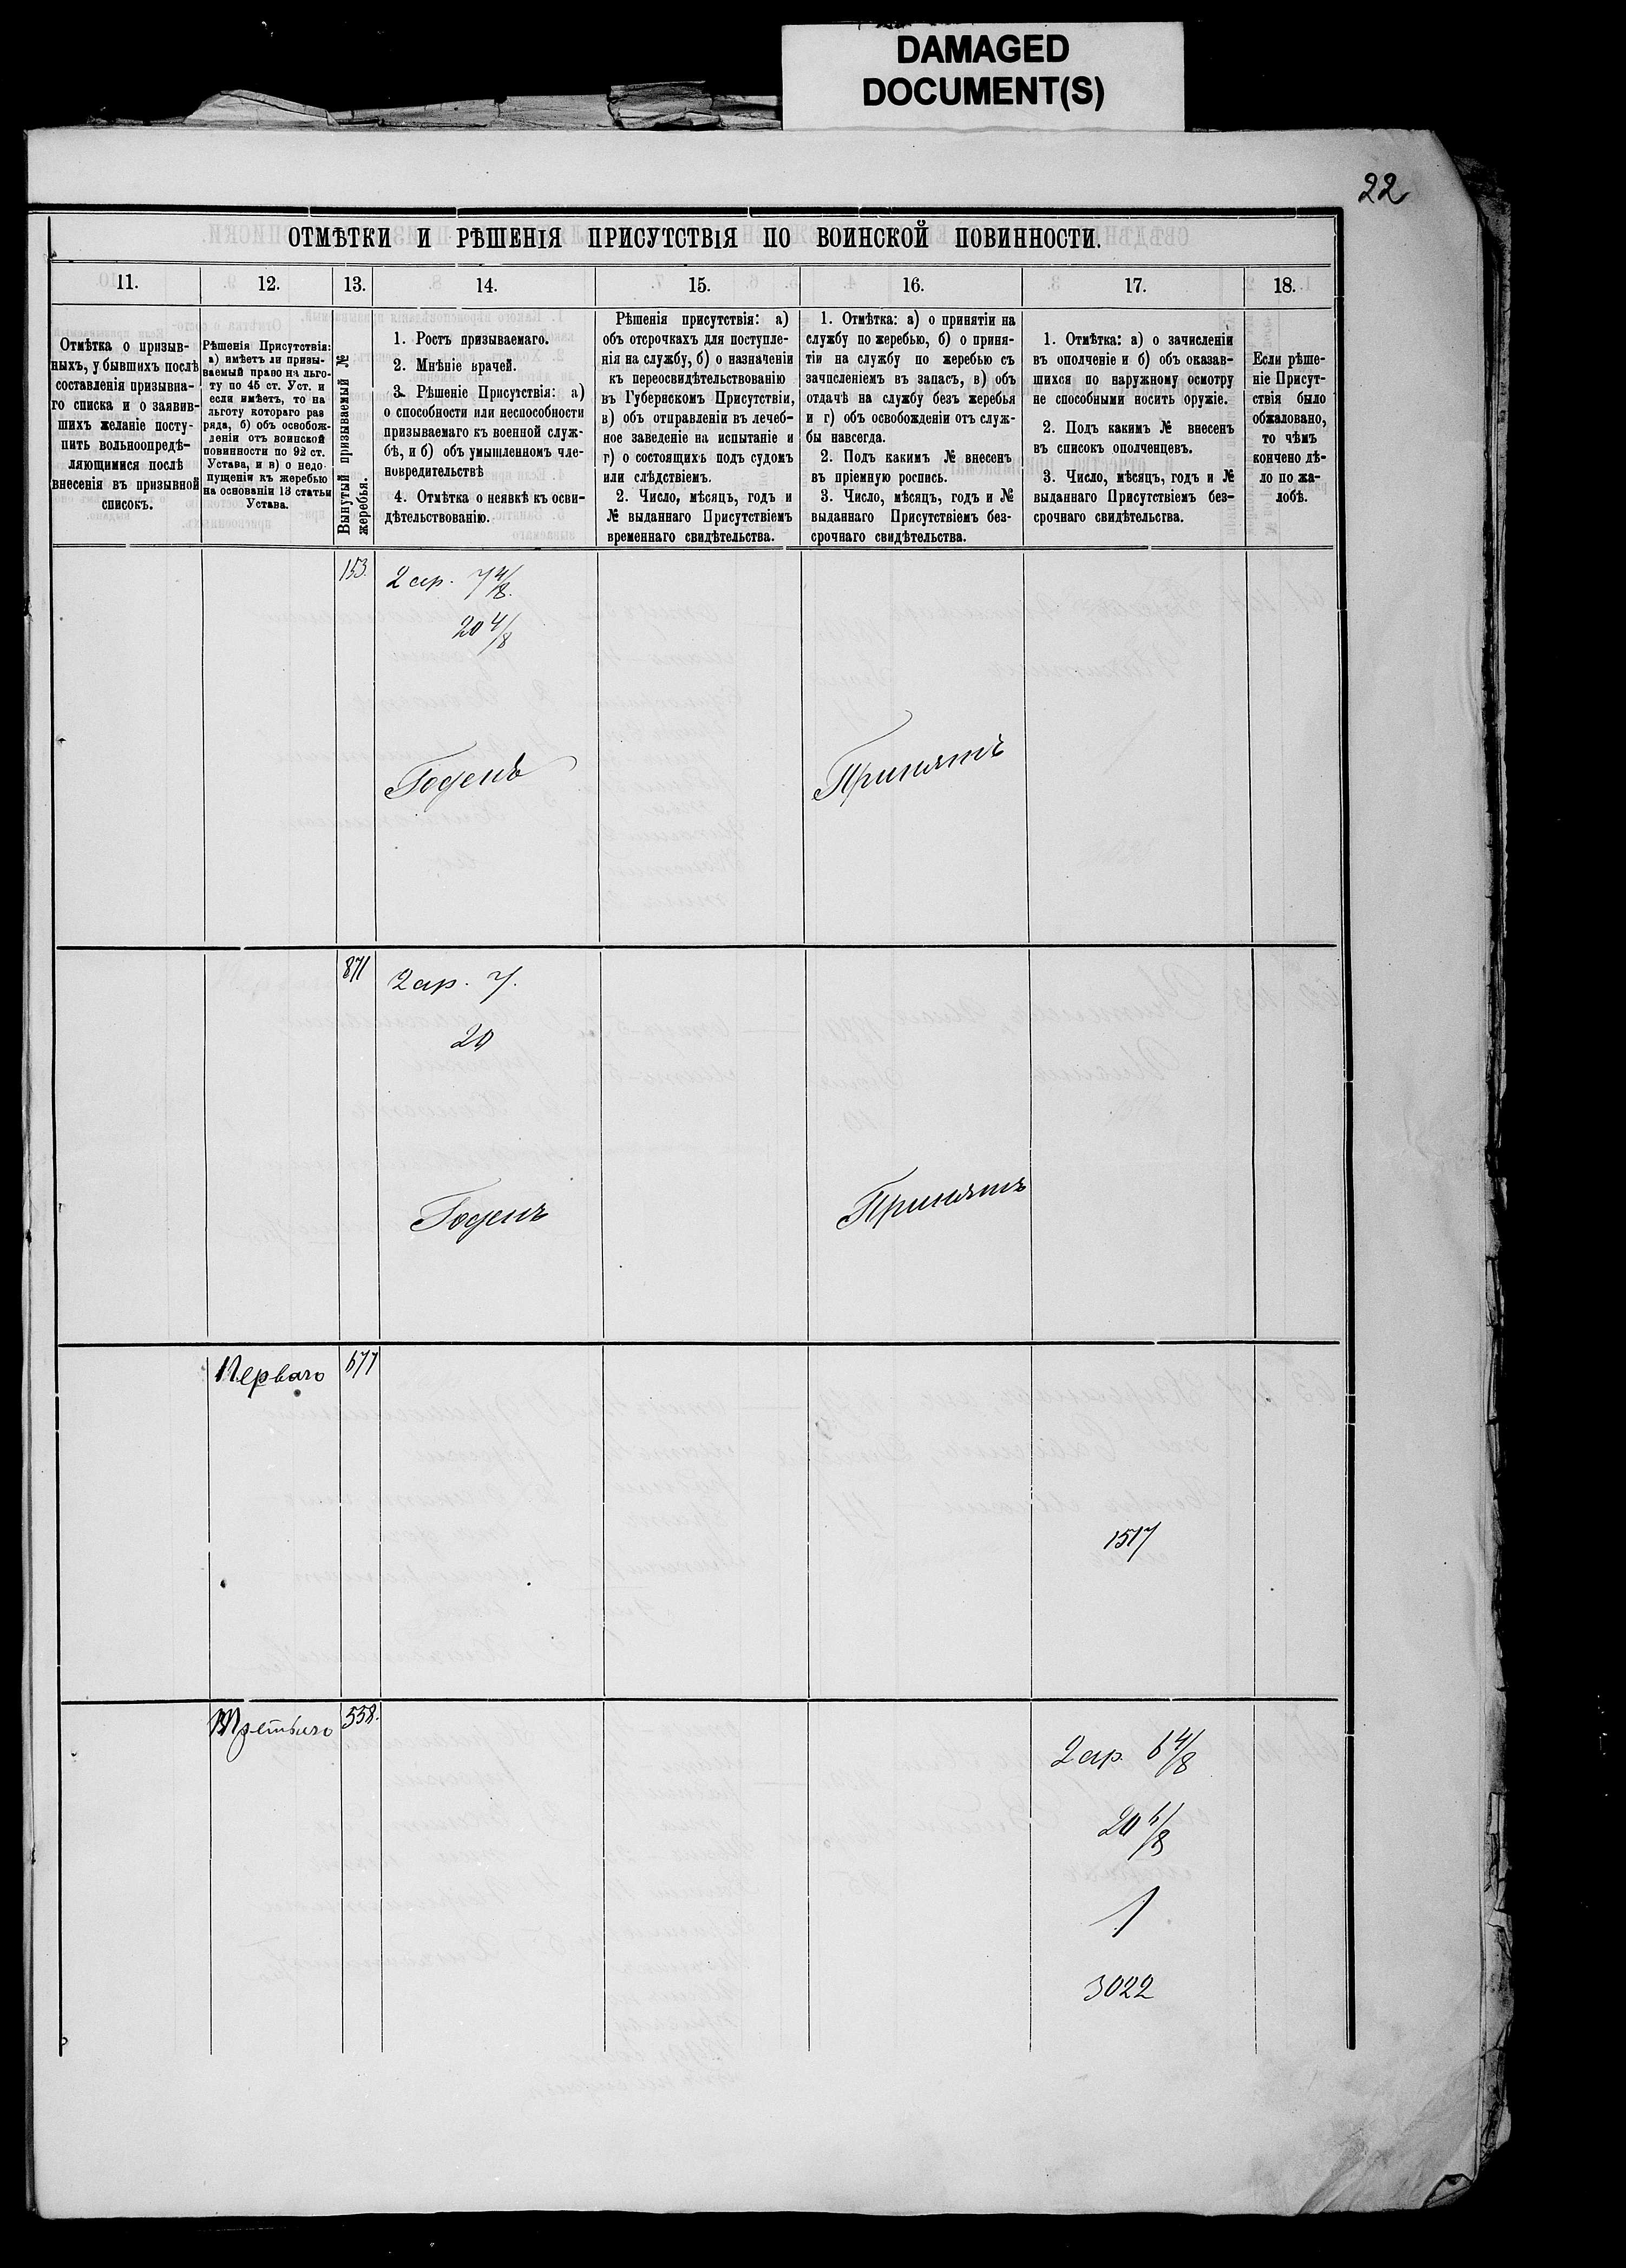 DAMAGED
DOCUMENT(S)
22
ОТМѢТКИ И РѢШЕНІЯ ПРИСУТСТВІЯ ПО ВОИНСКОЙ ПОВИННОСТИ.
11. 12. 13. 14. 15. 16. 17. 18.
Отмѣтка о призыв-
ныхъ, убывшихъ послѣ
составленія призывна-
го списка и о заявив-
шихъ желаніе посту-
пить вольноопредѣ-
ляющимися послѣ
внесенія въ призывной
списокъ.
Рѣшенія Присутствія:
а) имѣетъ ли призы-
ваемый право на льго-
ту по 45 ст. Уст. и
если имѣетъ, то на
льготу котораго раз
ряда, б) объ освобож-
деніи отъ воинской
повинности по 92 ст.
Устава, и в) о недо
пущеніи къ жеребью
на основаніи 13 статьи
Устава.
Вынутый призываемый №
жеребья.
1. Ростъ призываемаго.
2. Мнѣніе врачей.
3. Рѣшеніе Присутствія: а)
о способности или неспособности
призываемаго къ военной служ-
бѣ, и б) объ умышленномъ чле-
новредительствѣ
4. Отмѣтка о неявкѣ къ осви-
дѣтельствованію.
Рѣшенія присутствія: а)
объ отсрочкахъ для поступле-
нія на службу, б) о назначеніи
къ переосвидѣтельствованію
въ Губернскомъ Присутствіи,
в) объ отправленіи въ лечеб-
ное заведеніе на испытаніе и
г) о состоящихъ подъ судомъ
или слѣдствіемъ.
2. Число, мѣсяцъ, годъ и
№ выданнаго Присутствіемъ
временнаго свидѣтельства.
1. Отмѣтка: а) о принятіи на
службу по жеребью, б) о приня-
тіи на службу по жеребью съ
зачисленіемъ въ запасъ, в) объ
отдачѣ на службу безъ жеребья
и г) объ освобожденіи отъ служ-
бы навсегда.
2. Подъ какимъ № внесенъ
въ пріемную роспись.
3. Число, мѣсяцъ, годъ и №
выданнаго Присутствіемъ без-
срочнаго свидѣтельства.
1. Отмѣтка: а) о зачисленіи
въ ополченіе и б) объ оказав-
шихся по наружному осмотру
не способными носить оружіе.
2. Подъ какимъ № внесенъ
въ списокъ ополченцевъ.
3. Число, мѣсяцъ, годъ и №
выданнаго Присутствіемъ без-
срочнаго свидѣтельсгва.
Если рѣше-
ніе Присут-
ствія было
обжаловано,
то чѣмъ
кончено дѣ-
ло по жа-
лобѣ.
153. 2 ар. 7 4/8.
20 4/8
Годенъ Принятъ
871 2 ар. 7.
20
Годенъ Принятъ
Перваго 677
1517
Третьяго 558.
2 ар. 6 4/8
20 6/8
1
3022